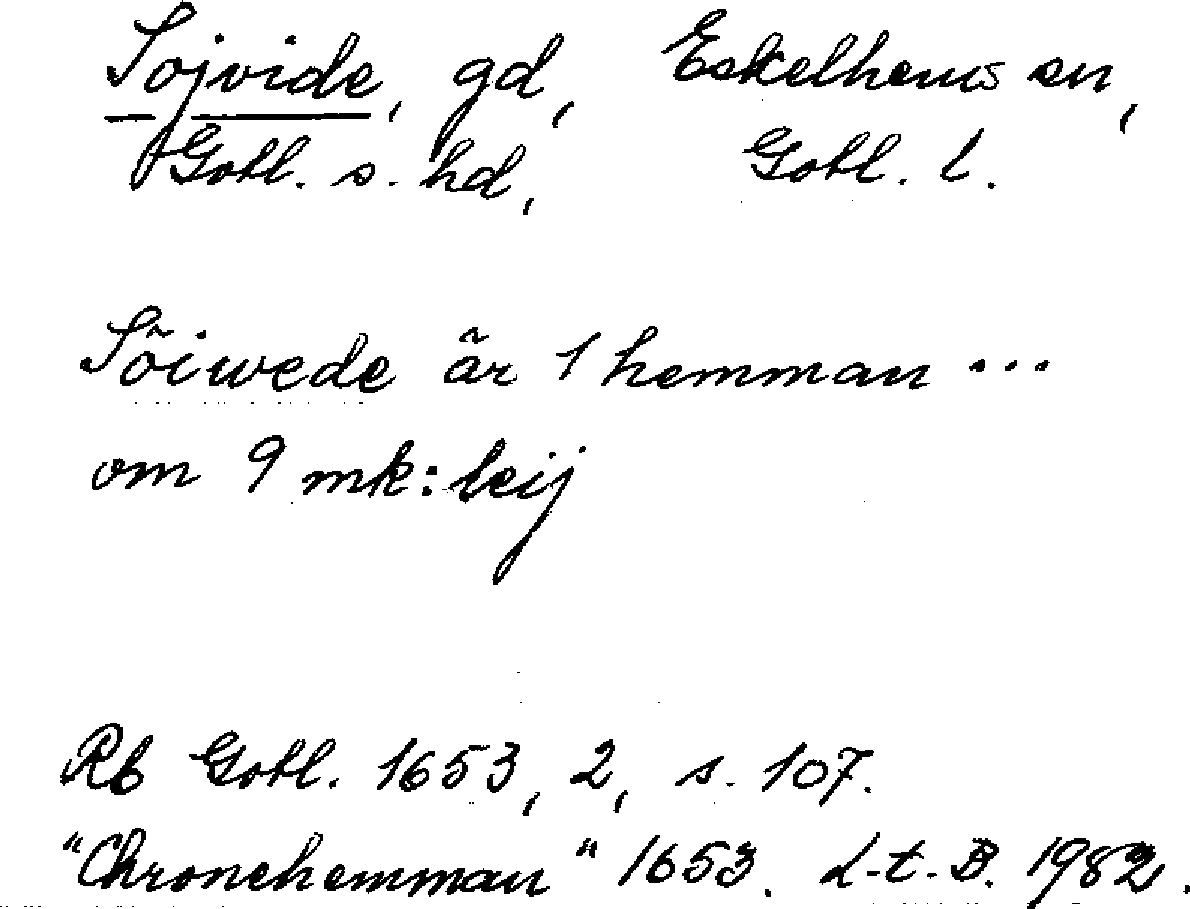 Sojvide, gd, Eskelhems sn,
Gotl. s. hd, Gotl. l.
Söiwede är 1 hemman ...
om 9 mk: leij
Rb Gotl. 1653, 2, s. 107.
"Chronehemman" 1653. L-t-B. 1982.